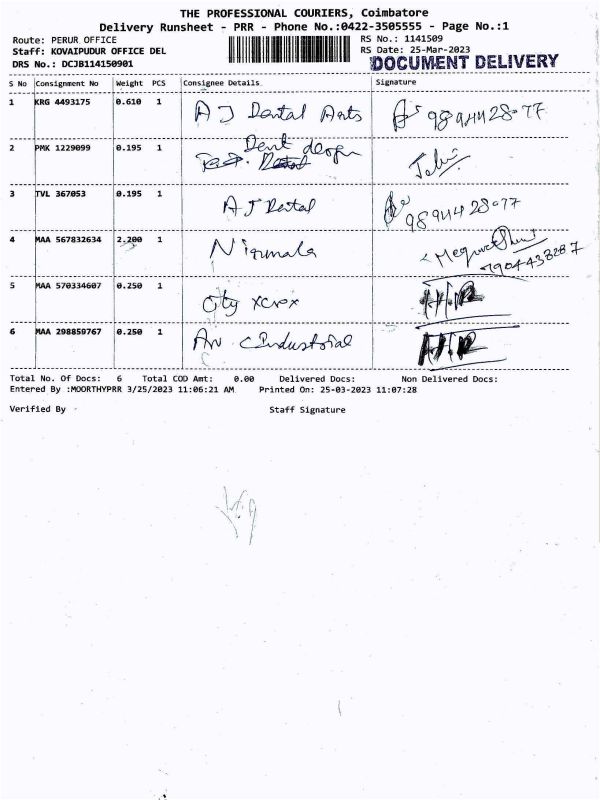 THE PROFESSIONAL COURIERS, Coimbatore
Delivery Runsheet - PRR - Phone No.:0422-3505555 - Page No.:1
Route: PERUR OFFICE RS No.: 1141509
Staff: KOVAIPUDUR OFFICE DEL RS Date: 25-Mar-2023
DRS No.: DCJB114150901 DOCUMENT DELIVERY
S No Consignment No Weight PCS Consignee Details Signature
1 KRG 4493175 0.610 1 A J Dental Arts
2 PMK 1229099 0.195 1 Dent design
3 TVL 367053 0.195 1 A J Dental
4 MAA 567832634 2.200 1 Nirumala 7904438287
5 MAA 570334607 0.250 1 City xerox
6 MAA 298859767 0.250 1 Industrial
Total No. Of Docs: 6 Total COD Amt: 0.00 Delivered Docs: Non Delivered Docs:
Entered By :MOORTHYPRR 3/25/2023 11:06:21 AM Printed On: 25-03-2023 11:07:28
Verified By Staff Signature